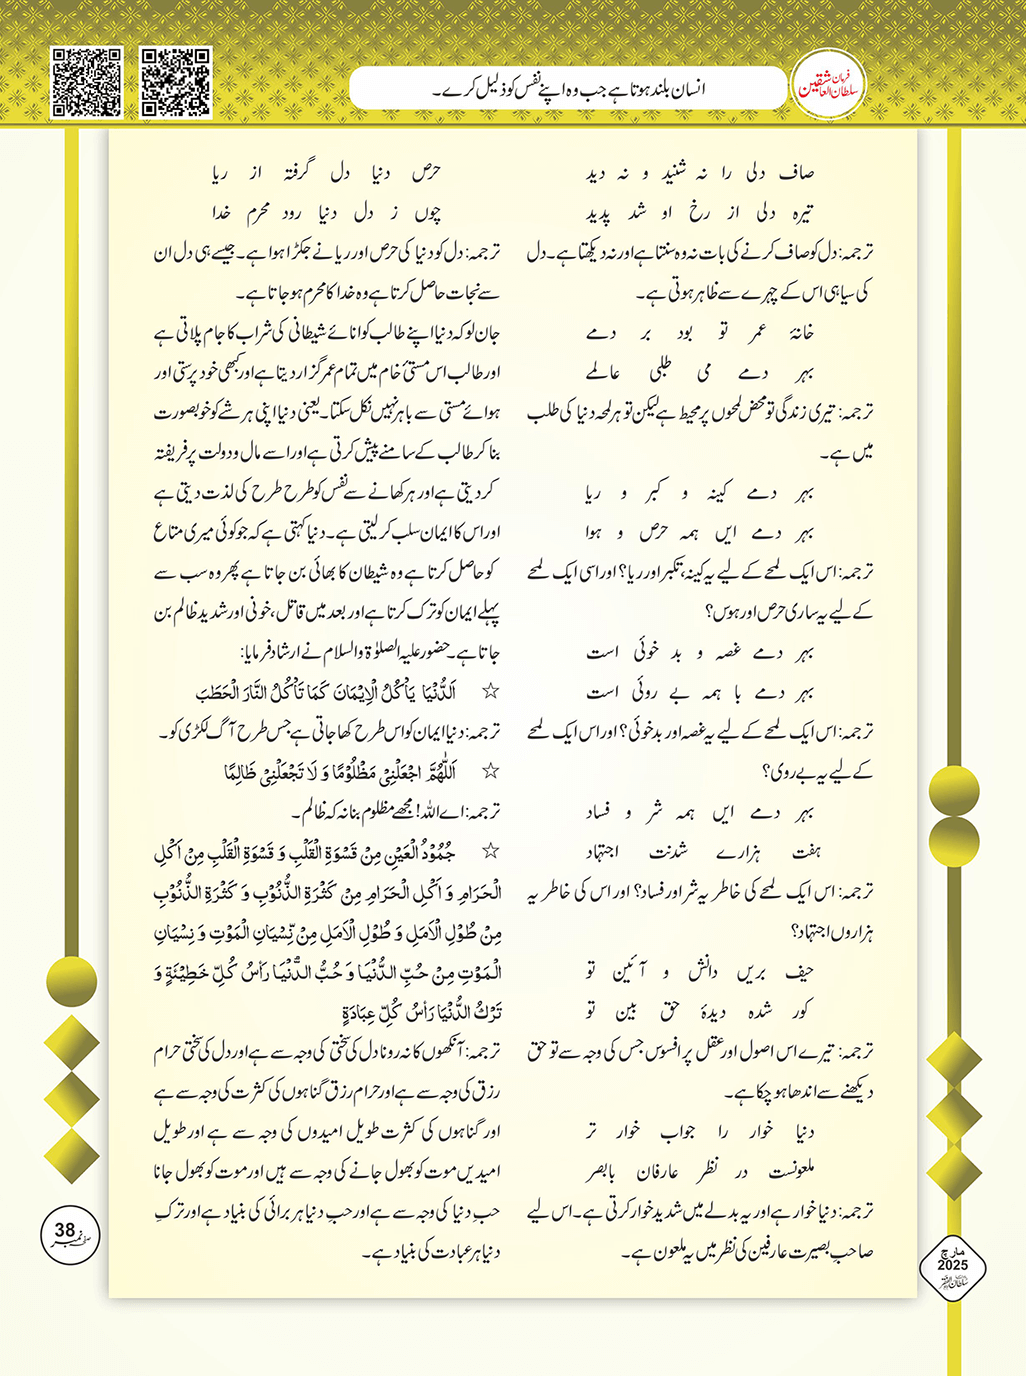 فرمان
سلطان العاشقین
انسان بلند ہوتا ہے جب وہ اپنے نفس کو ذلیل کرے۔
صاف دلی را نہ شنید و نہ دید
تیرہ دلی از رخ او شد پدید
ترجمہ: دل کو صاف کرنے کی بات نہ وہ سنتا ہے اور نہ دیکھتا ہے۔ دل
کی سیاہی اس کے چہرے سے ظاہر ہوتی ہے۔
خانۂ عمر تو بود بر دمے
بہر دمے می طلبی عالمے
ترجمہ: تیری زندگی تو محض لمحوں پر محیط ہے لیکن تو ہر لمحہ دنیا کی طلب
میں ہے۔
بہر دمے کینہ و کبر و ریا
بہر دمے ایں ہمہ حرص و ہوا
ترجمہ: اس ایک لمحے کے لیے یہ کینہ، تکبر اور ریا؟ اور اسی ایک لمحے
کے لیے یہ ساری حرص اور ہوس؟
بہر دمے غصہ و بد خوئی است
بہر دمے با ہمہ بے روئی است
ترجمہ: اس ایک لمحے کے لیے یہ غصہ اور بدخوئی؟ اور اس ایک لمحے
کے لیے یہ بے روی؟
بہر دمے ایں ہمہ شر و فساد
ہفت ہزارے شدنت اجتہاد
ترجمہ: اس ایک لمحے کی خاطر یہ شر اور فساد؟ اور اس کی خاطر یہ
ہزاروں اجتہاد؟
حیف بریں دانش و آئین تو
کور شدہ دیدۂ حق بین تو
ترجمہ: تیرے اس اصول اور عقل پر افسوس جس کی وجہ سے تو حق
دیکھنے سے اندھا ہو چکا ہے۔
دنیا خوار را جواب خوار تر
ملعونست در نظر عارفان بابصر
ترجمہ: دنیا خوار ہے اور یہ بدلے میں شدید خوار کرتی ہے۔ اس لیے
صاحبِ بصیرت عارفین کی نظر میں یہ ملعون ہے۔
حرص دنیا دل گرفتہ از ریا
چوں ز دل دنیا رود محرم خدا
ترجمہ: دل کو دنیا کی حرص اور ریا نے جکڑا ہوا ہے۔ جیسے ہی دل ان
سے نجات حاصل کرتا ہے وہ خدا کا محرم ہو جاتا ہے۔
جان لو کہ دنیا اپنے طالب کو انائے شیطانی کی شراب کا جام پلاتی ہے
اور طالب اس مستیٔ خام میں تمام عمر گزار دیتا ہے اور کبھی خود پرستی اور
ہوائے مستی سے باہر نہیں نکل سکتا۔ یعنی دنیا اپنی ہر شے کو خوبصورت
بنا کر طالب کے سامنے پیش کرتی ہے اور اسے مال و دولت پر فریفتہ
کر دیتی ہے اور ہر کھانے سے نفس کو طرح طرح کی لذت دیتی ہے
اور اس کا ایمان سلب کر لیتی ہے۔ دنیا کہتی ہے کہ جو کوئی میری متاع
کو حاصل کرتا ہے وہ شیطان کا بھائی بن جاتا ہے پھر وہ سب سے
پہلے ایمان کو ترک کرتا ہے اور بعد میں قاتل، خونی اور شدید ظالم بن
جاتا ہے۔ حضور علیہ الصلوٰۃ والسلام نے ارشاد فرمایا:
☆ اَلدُّنْیَا یَأْکُلُ الْاِیْمَانَ کَمَا تَأْکُلُ النَّارَ الْحَطَبَ
ترجمہ: دنیا ایمان کو اس طرح کھا جاتی ہے جس طرح آگ لکڑی کو۔
☆ اَللّٰھُمَّ اجْعَلْنِیْ مَظْلُوْمًا وَ لَا تَجْعَلْنِیْ ظَالِمًا
ترجمہ: اے اللہ! مجھے مظلوم بنا نہ کہ ظالم۔
☆ جُمُوْدُ الْعَیْنِ مِنْ قَسْوَۃِ الْقَلْبِ وَ قَسْوَۃِ الْقَلْبِ مِنْ اَکْلِ
الْحَرَامِ وَ اَکْلِ الْحَرَامِ مِنْ کَثْرَۃِ الذُّنُوْبِ وَ کَثْرَۃِ الذُّنُوْبِ
مِنْ طُوْلِ الْاَمَلِ وَ طُوْلِ الْاَمَلِ مِنْ نِّسْیَانِ الْمَوْتِ وَ نِسْیَانِ
الْمَوْتِ مِنْ حُبِّ الدُّنْیَا وَ حُبُّ الدُّنْیَا رَأْسُ کُلِّ خَطِیْئَۃٍ وَ
تَرْکُ الدُّنْیَا رَأْسُ کُلِّ عِبَادَۃٍ
ترجمہ: آنکھوں کا نہ رونا دل کی سختی کی وجہ سے ہے اور دل کی سختی حرام
رزق کی وجہ سے ہے اور حرام رزق گناہوں کی کثرت کی وجہ سے ہے
اور گناہوں کی کثرت طویل امیدوں کی وجہ سے ہے اور طویل
امیدیں موت کو بھول جانے کی وجہ سے ہیں اور موت کو بھول جانا
حبِ دنیا کی وجہ سے ہے اور حبِ دنیا ہر برائی کی بنیاد ہے اور ترکِ
دنیا ہر عبادت کی بنیاد ہے۔
38
صفحہ نمبر
مارچ
2025
سلطان الفقر